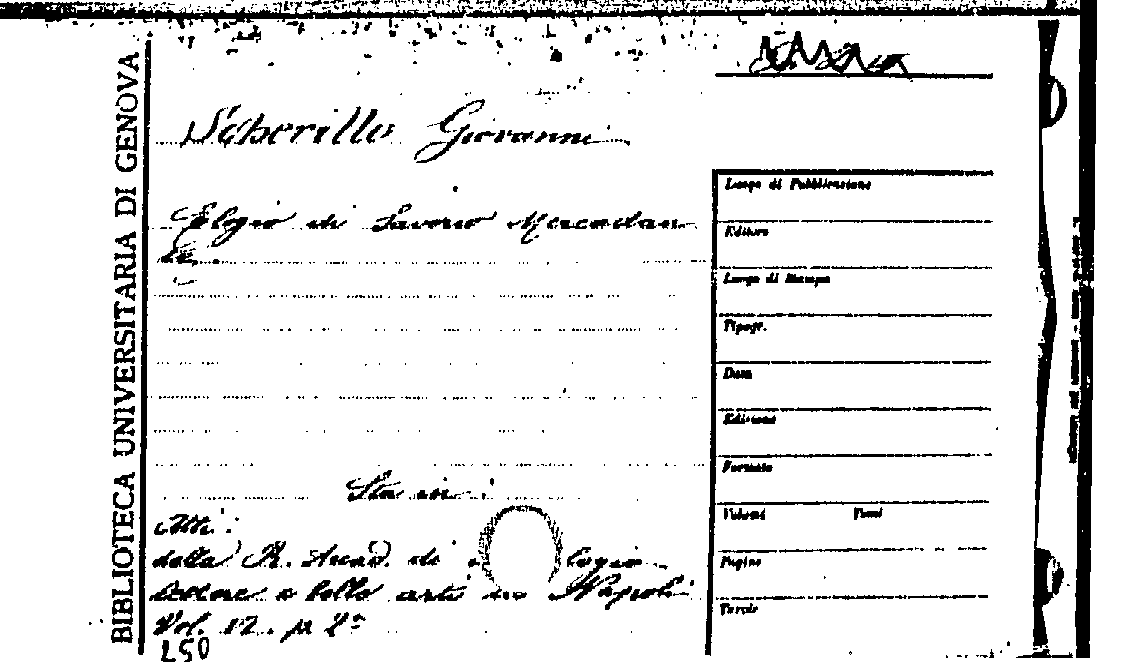 BIBLIOTECA UNIVERSITARIA DI GENOVA
Scherillo Giovanni
Elogio di Saverio Mercadan
te
Sta in:
Atti
della R. Accad. di logia
lettere e belle arti in Napoli
Vol. 12. p. 2ª
250
Luogo di Pubblicazione
Editore
Luogo di Stampa
Tipogr.
Data
Edizione
Formato
Volumi Tomi
Pagine
Tavole